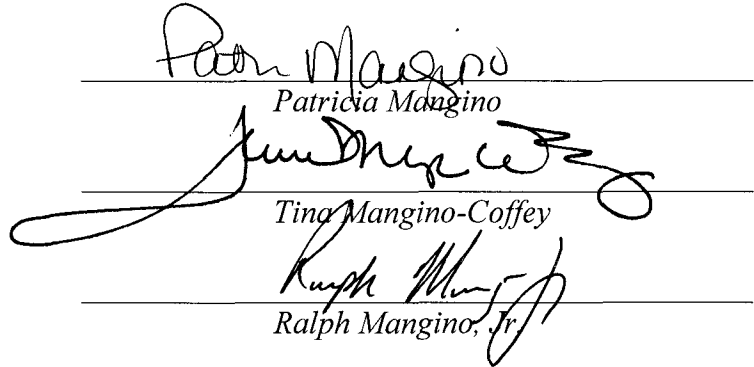 Patti Mangino
Patricia Mangino
Tina Mangino-Coffey
Ralph Mangino Jr
Ralph Mangino, Jr.